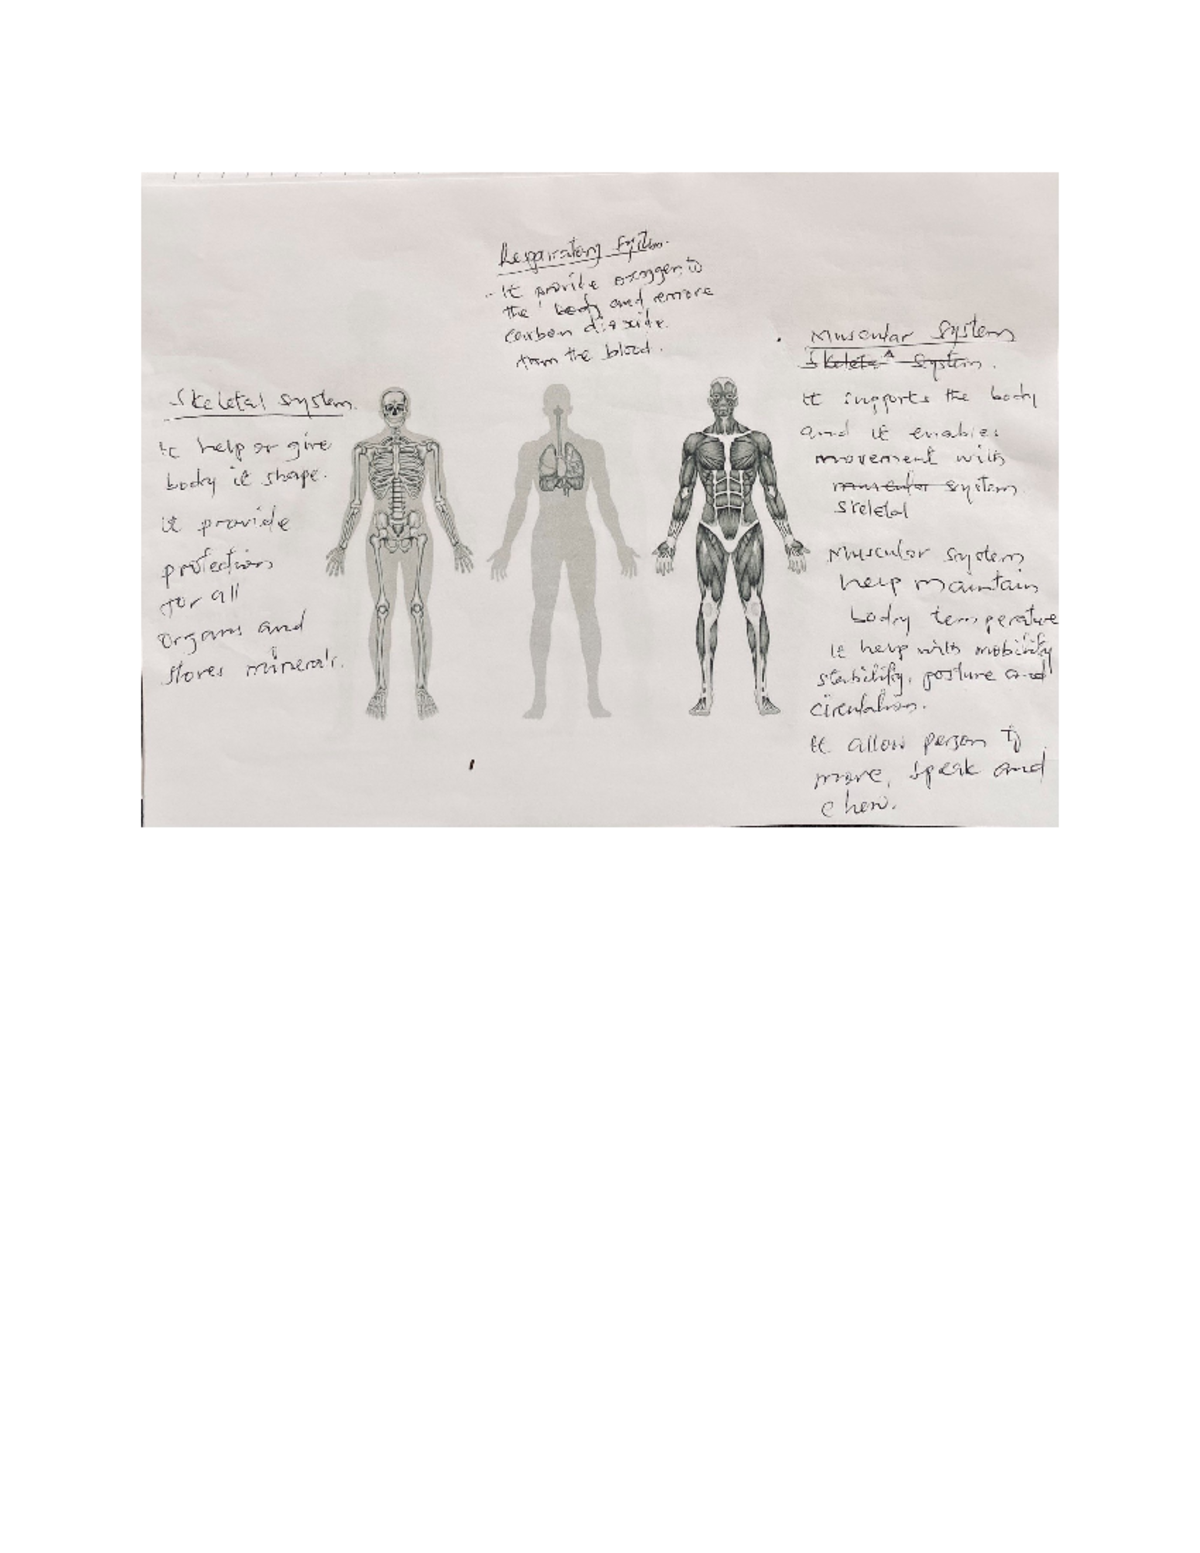 Skeletal system
It help or give
body it shape.
it provide
protections
for all
organs and
stores minerals.
Respiratory system.
It provide oxygen to
the body and remove
carbon dioxide.
from the blood.
Muscular System
Skeletal System.
It supports the body
and it enables
movement with
muscular system
skeletal
Muscular system
help maintain
body temperature
it help with mobility
stability, posture and
circulation.
It allow person to
move, speak and
chew.